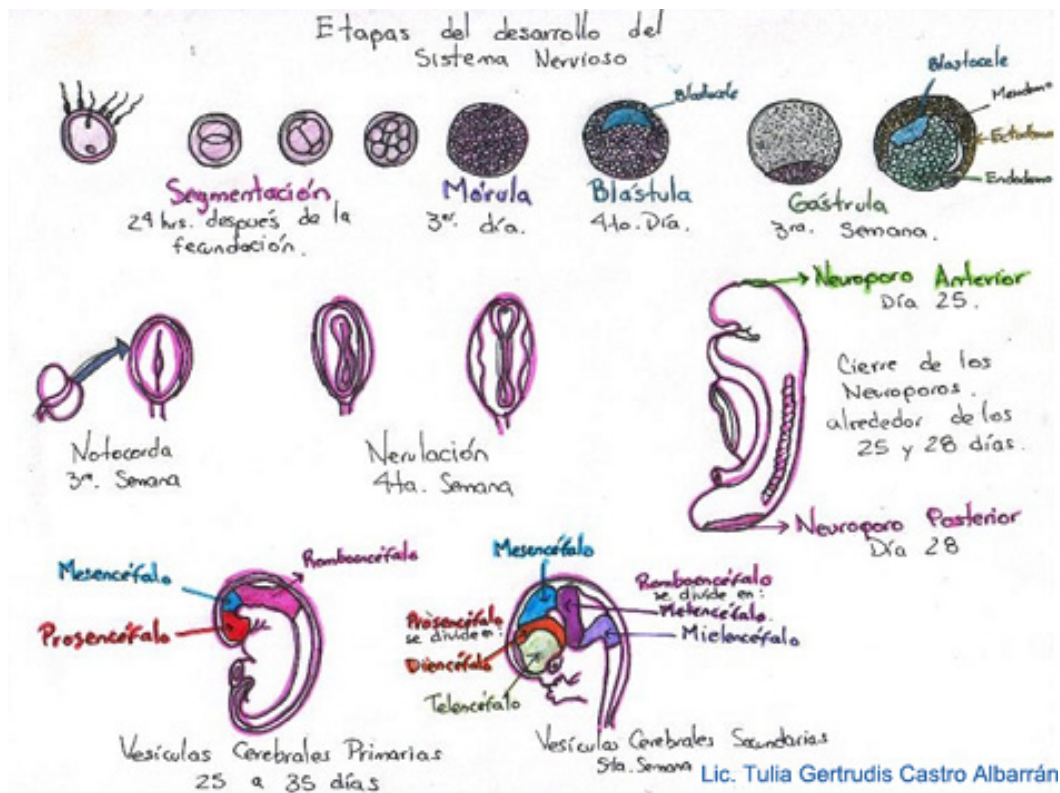 Etapas del desarrollo del
Sistema Nervioso
Blastocele
Blastocele
Mesodermo
Ectodermo
Endodermo
Segmentación
24 hrs. después de la
fecundación.
Mórula
3er. día.
Blástula
4to. Día.
Gástrula
3ra. Semana.
Notocorda
3ra. Semana
Nerulación
4ta. Semana
Neuroporo Anterior
Día 25.
Cierre de los
Neuroporos.
alrededor de los
25 y 28 días.
Neuroporo Posterior
Día 28
Mesencéfalo
Romboencéfalo
Prosencéfalo
Vesículas Cerebrales Primarias
25 a 35 días
Mesencéfalo
Romboencéfalo
se divide en:
Metencéfalo.
Mielencéfalo
Prosencéfalo
se divide en:
Diencéfalo
Telencéfalo
Vesículas Cerebrales Secundarias
5ta. Semana
Lic. Tulia Gertrudis Castro Albarrán